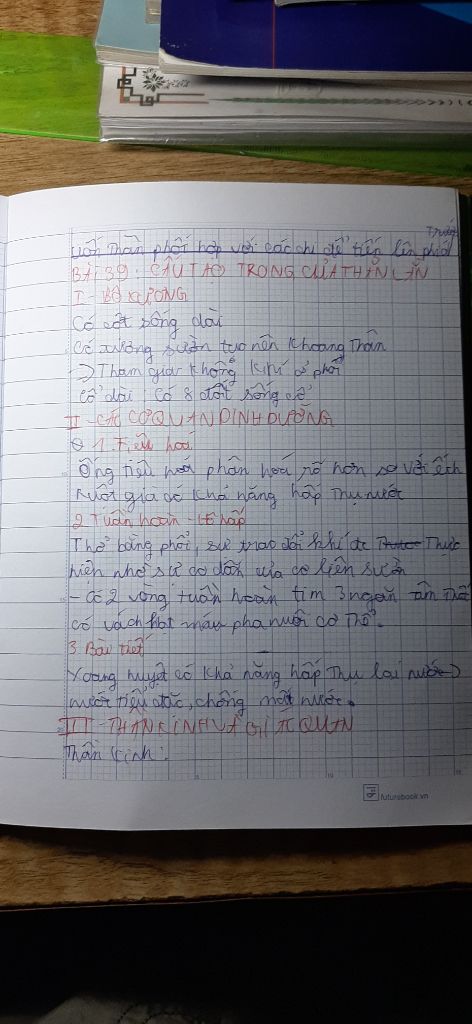 Trước
uốn thân phối hợp với các chi để tiến lên phía
BÀI 39: CẤU TẠO TRONG CỦA THẰN LẰN
I - BỘ XƯƠNG
Có cột sống dài
Có xương sườn tạo nên khoang thân
→ Tham gia không khí ở phổi
Cổ dài: Có 8 đốt sống cổ
II - CÁC CƠ QUAN DINH DƯỠNG
1. Tiêu hoá
Ống tiêu hoá phân hoá rõ hơn so với ếch
Ruột già có khả năng hấp thụ nước
2 Tuần hoàn - Hô hấp
Thở bằng phổi, sự trao đổi khí đc Thực
hiện nhờ sự co dãn của cơ liên sườn
- Có 2 vòng tuần hoàn tim 3 ngăn tâm thất
có vách hụt máu pha nuôi cơ thể.
3 Bài tiết
Xoang huyệt có khả năng hấp thụ lại nước →
nước tiểu đặc, chống mất nước.
III - THẦN KINH VÀ GIÁC QUAN
Thần kinh:
futurebook.vn